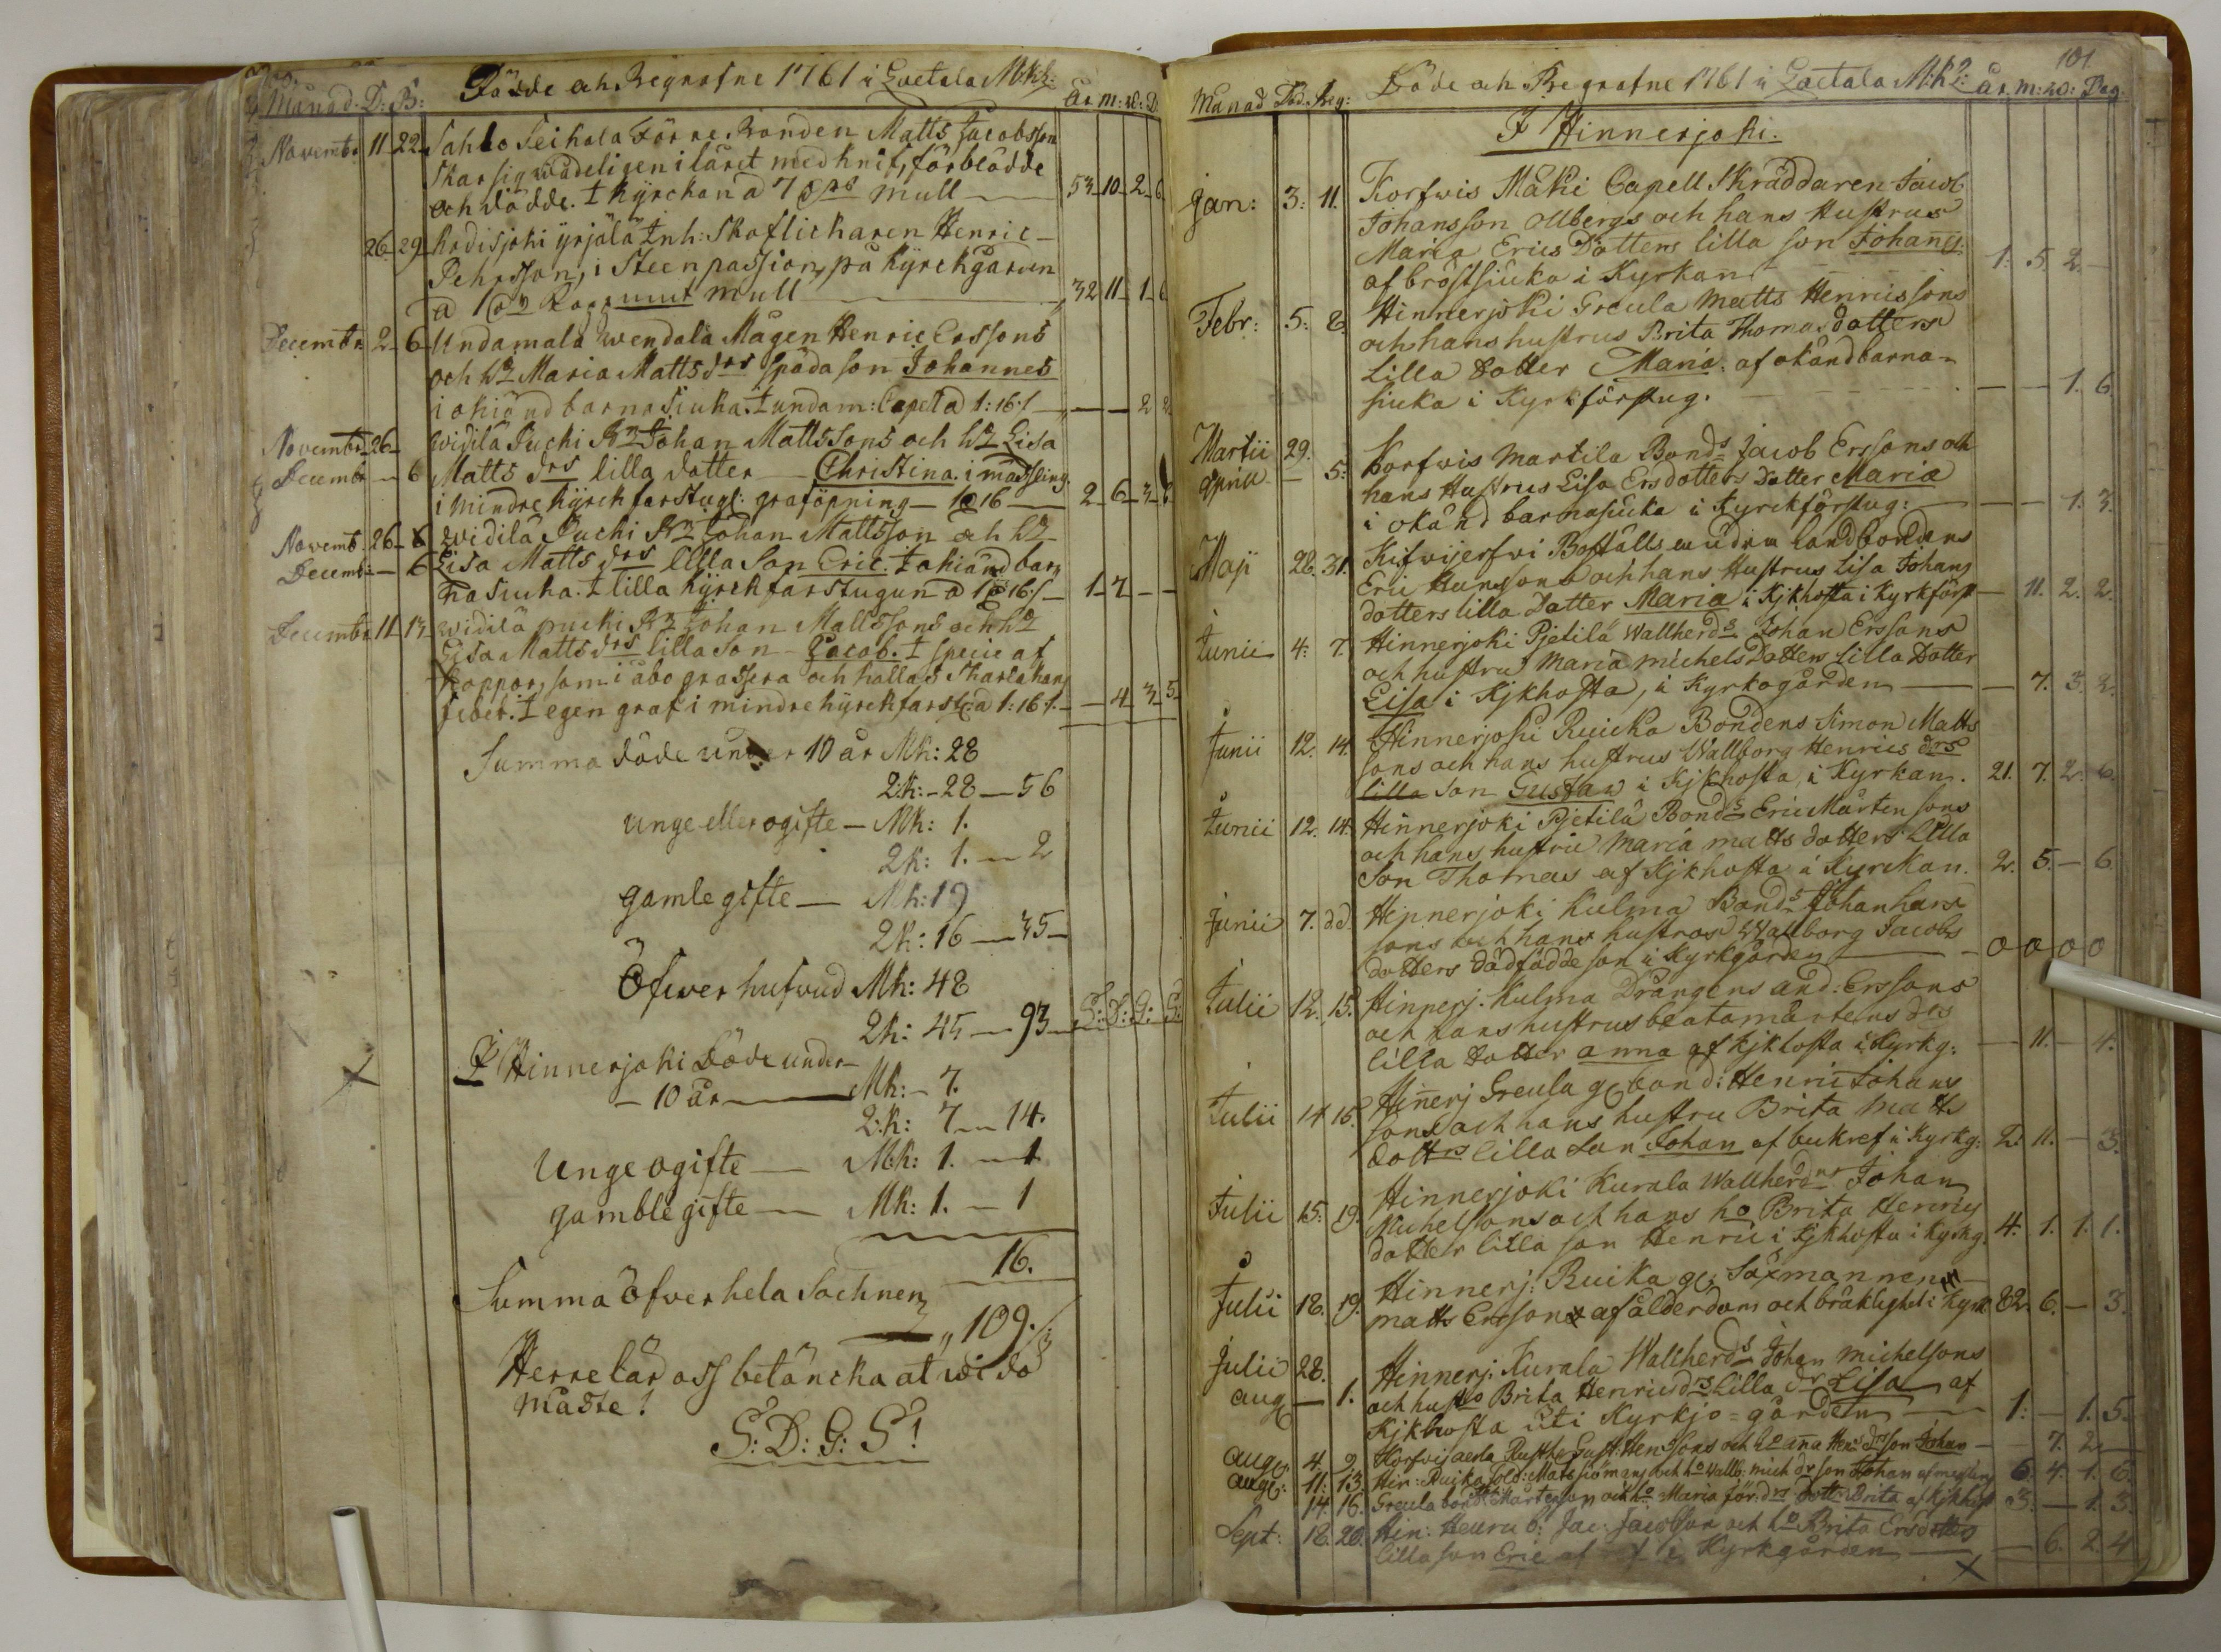 Döde och Begrafne 1761 i Loetala M:k:
Månad. D: B: År m: w: D
Novembr 11 22 Sahko Seikola Förre Bonden Matts Jacobsson
skar sig wådeligen i låret med knif, förblödde
och dödde. I kyrckan a 7 mull 53 10 2 6
26 29 Kodisjoki yrjälä Inh: Skoflickaren Henric
Pehrsson, i Steenpassion, på kyrckgården
mull 32 11 1 6
Decembr 2 6 Undamala wendala Mågen Henric Erssons
och h:s Maria Matts drs späda son Johannes
i okiänd barnasiuka. I undam: Capell a 1:16:/ — — 2 2
Novembr 26 widilä Puchi Johan Mattssons och h:s Lisa
Decembr 6 Matts drs lilla dotter Christina. i mässling.
i mindre kyrckfarstug: graföpning — 16 2 6 3
Novemb. 26 6 widilä Puchi Johan Mattsson och h:s
Decemb: 6 Lisa Matts drs lilla Son Eric. I okiänd bar
na siuka. I lilla kyrckfarstugun a 1 16:/ 1 7 — —
Decembr 11 13 widilä puchi Johan Mattssons och h:s
Lisa Matts drs lilla Son Jacob. I specie af
koppor, som i åbo grassera och kallas Skarlakans
feber. I egen graf i mindre kyrckfarst: a 1:16:/. — 4 3 5
Summa döde under 10 år Mk: 28
2:k: 28 — 56
Unge eller ogifte — Mk: 1.
2k: 1. — 2
gamle gifte — Mk: 19
2k: 16 — 35
Öfwer hufwud Mk: 48
2k: 45 — 93 S: D: G: S:
I Hinnerjoki Döde under
— 10 år — Mk: 7.
2:k: 7 — 14.
Unge ogifte — Mk: 1. — 1
gamble gifte — Mk: 1. — 1
16.
Summa öfwer hela Sochnen
109.
Herre lär oss betäncka at wi dö
måste!
S: D: G: S!
101.
Döde och Begrafne 1761 i Loetala M:k: År. m: w: Dag.
Månad Död. Beg:
I Hinnerjoki.
Jan: 3: 11. Korfwis Mäki Capell Skräddaren Jacob
Johansson Ollbergs och hans Hustrus
Maria Erics Dotters lilla son Johannes.
af bröstsiuka i Kyrkan 1. 5. 2. —
Febr: 5: 8. Hinnerjoki Greula Matts Henrissons
och hans hustrus Brita Thomasdotters
Lilla dotter Maria. af okänd barna-
siuka i Kyrkförstug. — — 1. 6
Martii 29. Korfwis Martila Bonds Jacob Erssons och
April — 5. hans Hustrus Lisa Ersdotters Dotter Maria
i okänd barnasiuka i Kyrckförstug: — — 1. 3.
Maji 28. 31. Kifwijerfwi landbondens
Eric Hanssons och hans Hustrus Lisa Johans
dotters lilla Dotter Maria i Kjkhosta i Kyrkförst — 11. 2. 2.
Junii 4: 7. Hinnerjoki Pjetilä Wallherds Johan Erssons
och hustrus Maria Michels Dotters lilla Dotter
Lisa i Kjkhosta, i Kyrkogården — 7. 3. 2.
Junii 12. 14. Hinnerjoki Ruicka Bondens Simon Matts
sons och hans hustrus Wallborg Henrics drs
lilla Son Gustaw i Kjkhosta, i Kyrkan. 21. 7. 2. 6.
Junii 12. 14. Hinnerjoki Pjetilä Bonds Eric Mårtensons
och hans hustru Maria matts dotters lilla
Son Thomas af Kjkhosta i Kyrckan. 2. 5. — 6
Junii 7. dd. Hinnerjoki Kulma Bonds Johan hans
sons och hans hustrus Wallborg Jacobs
dotters dödfödde son i Kyrkgården 0 0 0 0
Julii 12. 15. Hinnerj. Kulma Drängens And: Erssons
och hans hustrus beata mårtens drs
lilla dotter anna af kjkhosta i Kyrkg: — 11. — 4.
Julii 14 16. Hinerj Greula bond: Henric Johans
sons och hans hustru Brita Matts
dottrs lilla Son Johan af bukref i Kyrkg: 2. 11. — 3.
Julii 15: 19. Hinnerjoki Kurala Wallherdns Johan
Michelsons och hans ho Brita Henrics
dotter lilla son Henric i Kjkhosta i kyrkg. 4. 1. 1. 1.
Julii 18. 19. Hinnerj: Ruika Saxmannen
matts Ersson af ålderdom och bräklighet i Kyrk 82 6. — 3.
Julii 28. Hinnerj. Kurala Wallherds Johan Michelsons
aug — 1. och hustro Brita Henricsdrs lilla dr Lisa af
Kjkhosta uti Kyrkjo=gården 1: — 1. 5.
aug 4. 9. Gust: Hensons och ho ana Hens drs son Johan — 7. 2 —
aug: 11: 13. Hin: Ruika Sold: Mats siömans och ho Wallb: mich dr son Johan 6. 4. 1. 6.
14. 16. Greula bond Mårtenson och ho Maria dotter Brita af kjkhost 3. — 1. 3.
Sept: 18. 20. Hin: Heuru b: Jac: Jacobson och ho Brita Ersdotters
lilla son Eric af i Kyrkgården — 6. 2. 4